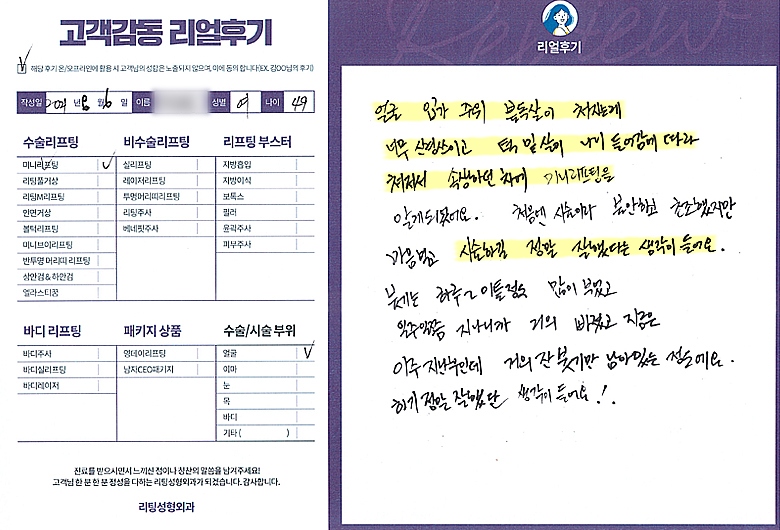 고객감동 리얼후기
해당 후기 온/오프라인에 활용 시 고객님의 성함은 노출되지 않으며, 이에 동의합니다(EX. 김OO님의 후기)
작성일 년 월 6 일 이름 성별 여 나이 49
수술리프팅
미니리프팅
리팅풀거상
리팅M리프팅
안면거상
볼턱리프팅
미니브이리프팅
반투명 머리띠 리프팅
상안검 & 하안검
엘라스티꿈
비수술리프팅
실리프팅
레이저리프팅
투명머리띠리프팅
리팅주사
베네핏주사
리프팅 부스터
지방흡입
지방이식
보톡스
필러
윤곽주사
피부주사
바디 리프팅
바디주사
바디실리프팅
바디레이저
패키지 상품
영데이리프팅
남자CEO패키지
수술/시술 부위
얼굴
이마
눈
목
바디
기타 ( )
진료를 받으시면서 느끼신 점이나 칭찬의 말씀을 남겨주세요!
고객님 한 분 한 분 정성을 다하는 리팅성형외과가 되겠습니다. 감사합니다.
리팅성형외과
리얼후기
얼굴 입가 주위 불독살이 처지는게
너무 신경쓰이고 턱 밑 살이 나이 들어감에 따라
처져서 속상하던 차에 미니리프팅을
알게되었어요. 처음엔 시술이라 불안하고 초조했지만
마음먹고 시술하길 정말 잘했다는 생각이 들어요.
붓기는 하루 ~ 이틀정도 많이 부었고
일주일쯤 지나니까 거의 빠졌고 지금은
이주 지난후인데 거의 잔 붓기만 남아있는 정도예요.
하기 정말 잘했단 생각이 들어요!.